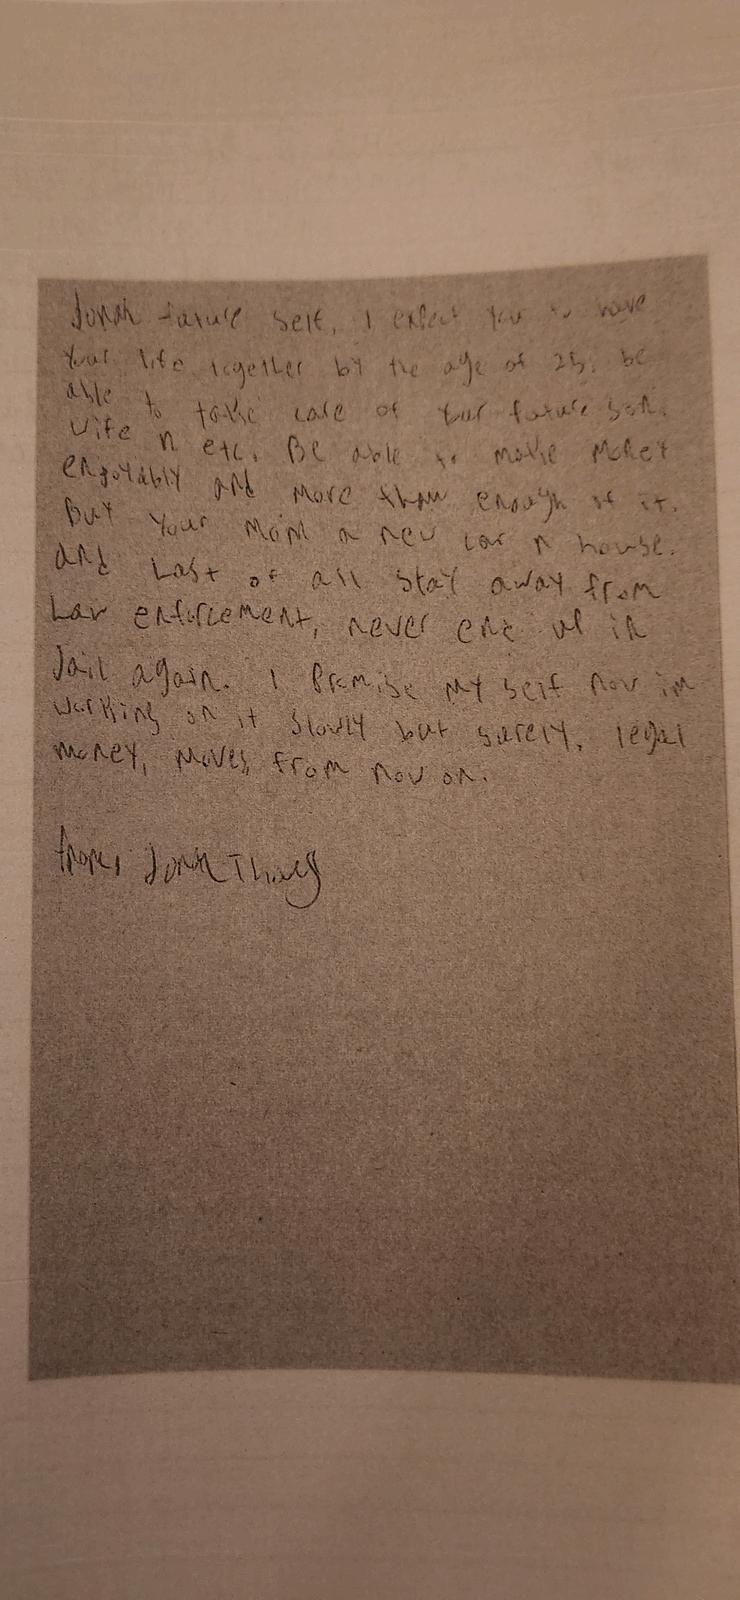 Jonah future self, I expect you to have
your life together by the age of 25. be
able to take care of your future son,
wife n etc. Be able to make money
enjoyably and more than enough of it.
Buy your mom a new car n house.
and Last of all stay away from
Law enforcement, never end up in
Jail again. I Promise my self now im
working on it slowly but surely, legal
money, moves from now on.
from, Jonah